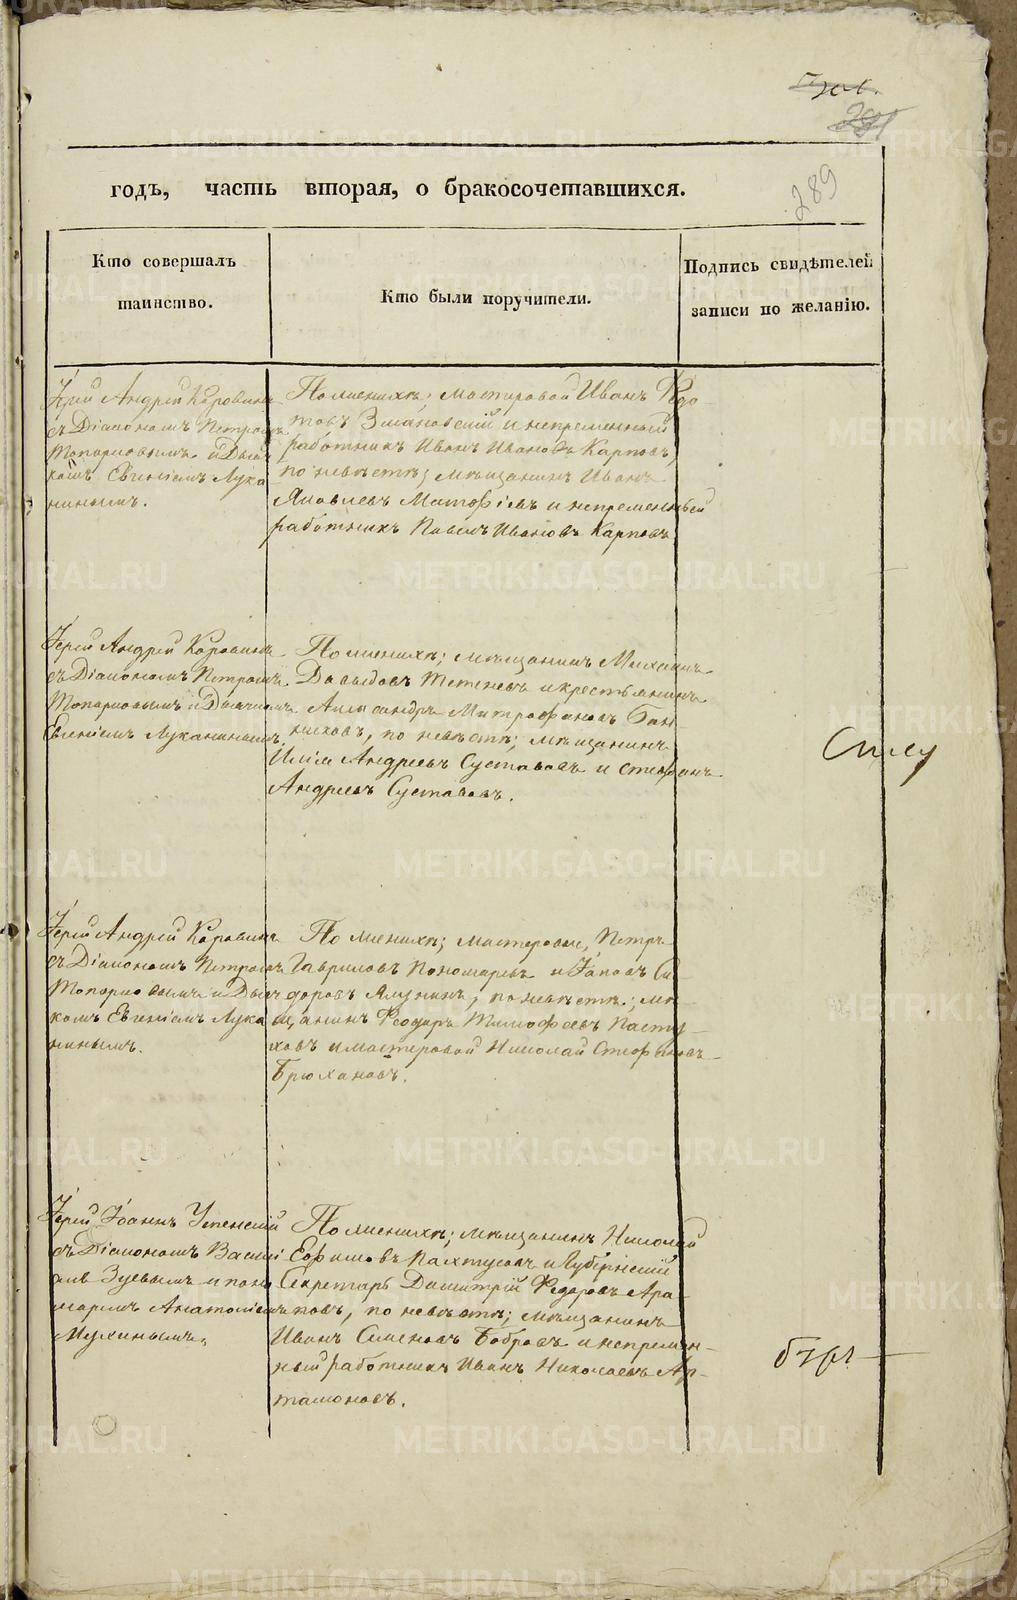 289
годъ, часть вторая, о бракосочетавшихся.
Кто совершалъ
таинство.
Кто были поручители.
Подпись свидѣтелей
записи по желанію.
Іерей Андрей Коровинъ
съ Діакономъ Петромъ
Топорковымъ и Дьяч
комъ Евгеніемъ Лука
нинымъ.
По женихѣ; мастеровой Иванъ Ѳедо-
товъ и непременный
работникъ Иванъ Ивановъ Карповъ,
по невѣстѣ; мѣщанинъ Иванъ
Яковлевъ и непременный
работникъ Павелъ Ивановъ Карповъ
Іерей Андрей Коровинъ
съ Діакономъ Петромъ
Топорковымъ и Дьячкомъ
Евгеніемъ Луканинымъ.
По женихѣ; мѣщанинъ Михаилъ
Давыдовъ Тетеневъ и крестьянинъ
Александръ Митрофановъ Бан-
никовъ, по невѣстѣ; мѣщанинъ
Илія Андреевъ Суставовъ и Стефанъ
Андреевъ Суставовъ.
Іерей Андрей Коровинъ
съ Діакономъ Петромъ
Топорковымъ и Дьяч
комъ Евгеніемъ Лука
нинымъ.
По женихѣ; мастеровые, Петръ
Гавриловъ Пономаревъ и Іаковъ Си
доровъ Ялунинъ, по невѣстѣ; мѣ
щанинъ Ѳеодоръ Тимофеевъ Пасту-
ховъ и мастеровой Николай Стефановъ
Брюхановъ.
Іерей Іоаннъ Успенскій
съ Діакономъ Васи
емъ Зуевымъ и поно
маремъ Анатоліемъ
Мухинымъ.
По женихѣ; мѣщанинъ Николай
Ефимовъ Пахтусовъ и Губернскій
Секретарь Димитрій Ѳедоровъ Ара-
повъ, по невѣстѣ; мѣщанинъ
Иванъ Семеновъ Бобровъ и непремен-
ный работникъ Иванъ Николаевъ Ар-
тамоновъ.
METRIKI.GASO-URAL.RU